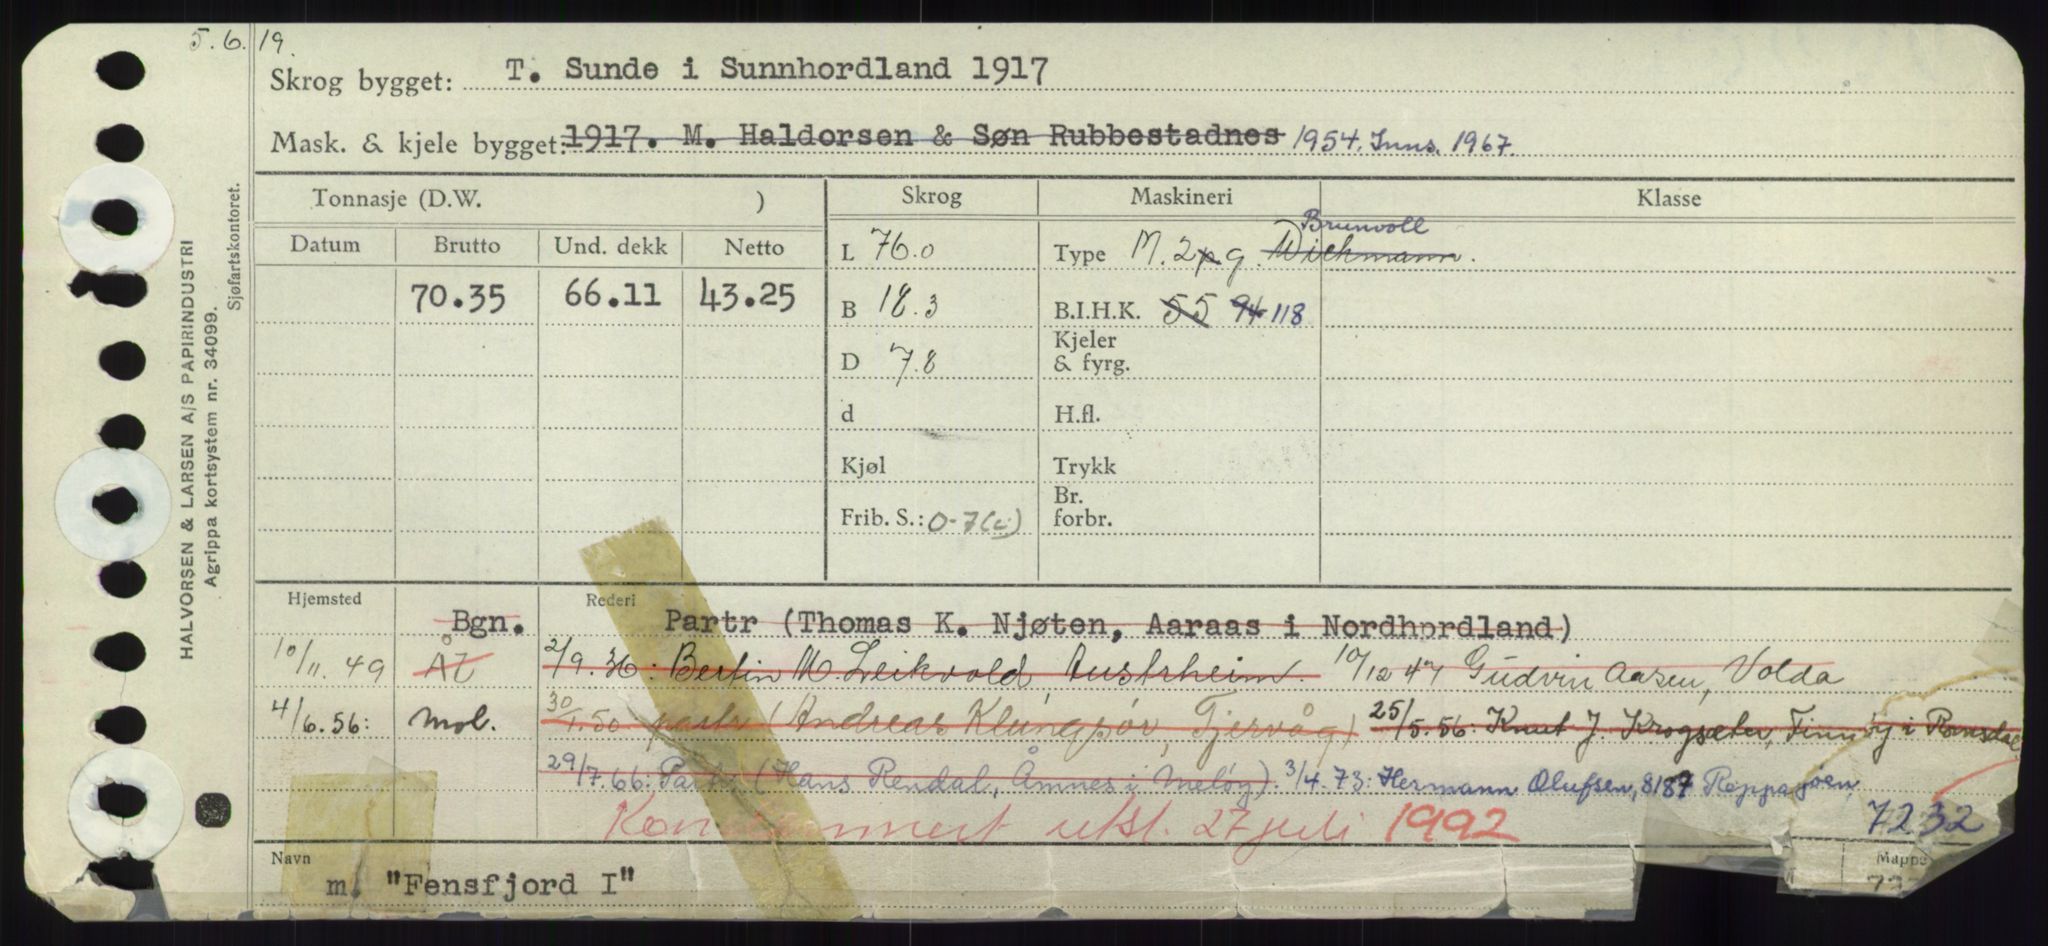 5.6.19.
Skrog bygget: T. Sunde i Sunnhordland 1917
Mask. & kjele bygget: 1917. M. Haldorsen & Søn Rubbestadnes 1954. Inns. 1967.
Tonnasje (D.W. ) Skrog Maskineri Klasse
Datum Brutto Und. dekk Netto
L 76.0 Type M. 2 g. Wichmann. Brunvoll
70.35 66.11 43.25
B 18.3 B.I.H.K. 55 94 118
D 7.8 Kjeler & fyrg.
d H.fl.
Kjøl Trykk
Frib. S.: 0-7(c) Br. forbr.
Hjemsted Rederi
Bgn. Partr (Thomas K. Njøten, Aaraas i Nordhordland)
10/11.49 ÅL 2/9.36: Bertin M. Leikvold, Austrheim. 10/12 47 Gudvin Aasen, Volda
4/6.56: Mol. 30/1.50: partr (Andreas Klungsør, Tjervåg) 25/5.56: Knut J. Krogsæter, Finnøy i Romsdal
29/7.66: Partr. (Hans Rendal, Åmnes i Meløy). 3/4.73: Hermann Olufsen, 8187
Kondemnert utsl. 27 juli 1992
7232
Navn
m. "Fensfjord I"
Mappe
HALVORSEN & LARSEN A/S PAPIRINDUSTRI
Agrippa kortsystem nr. 34099.
Sjøfartskontoret.